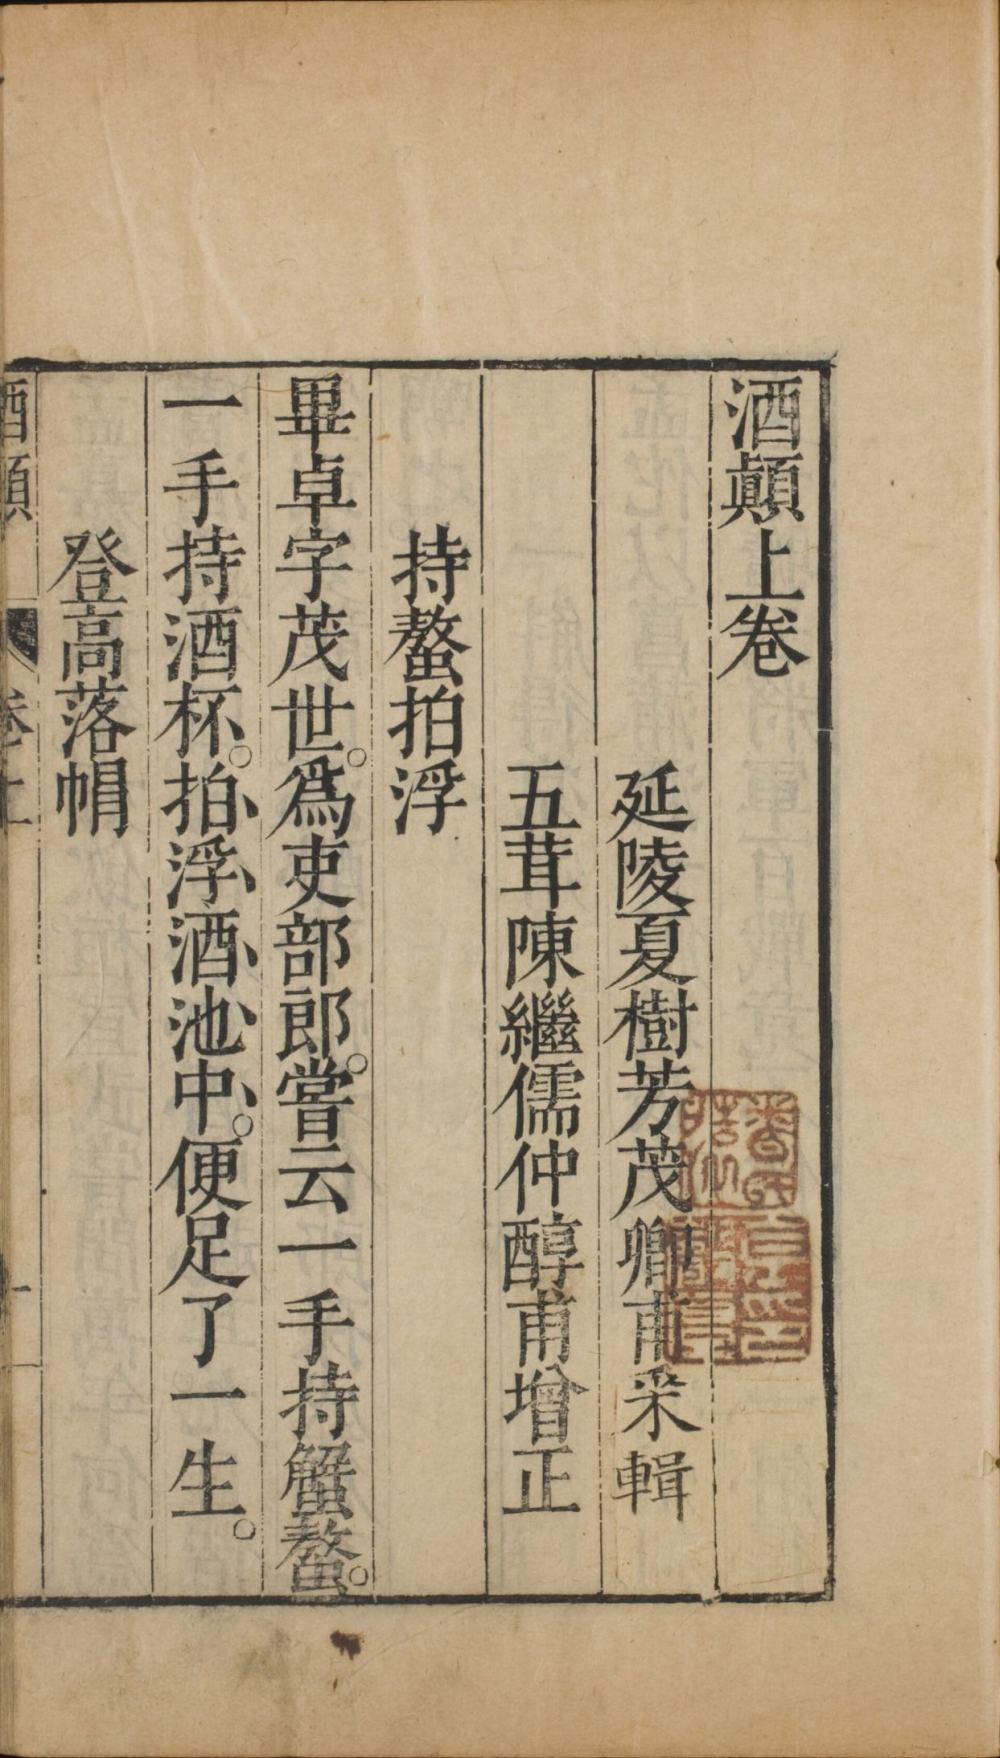 酒顛上卷
延陵夏樹芳茂卿甫采輯
五茸陳繼儒仲醇甫增正
持螯拍浮
畢卓字茂世。爲吏部郎。嘗云一手持蟹螯。
一手持酒杯。拍浮酒池中。便足了一生。
登高落帽
酒顛 卷上 一